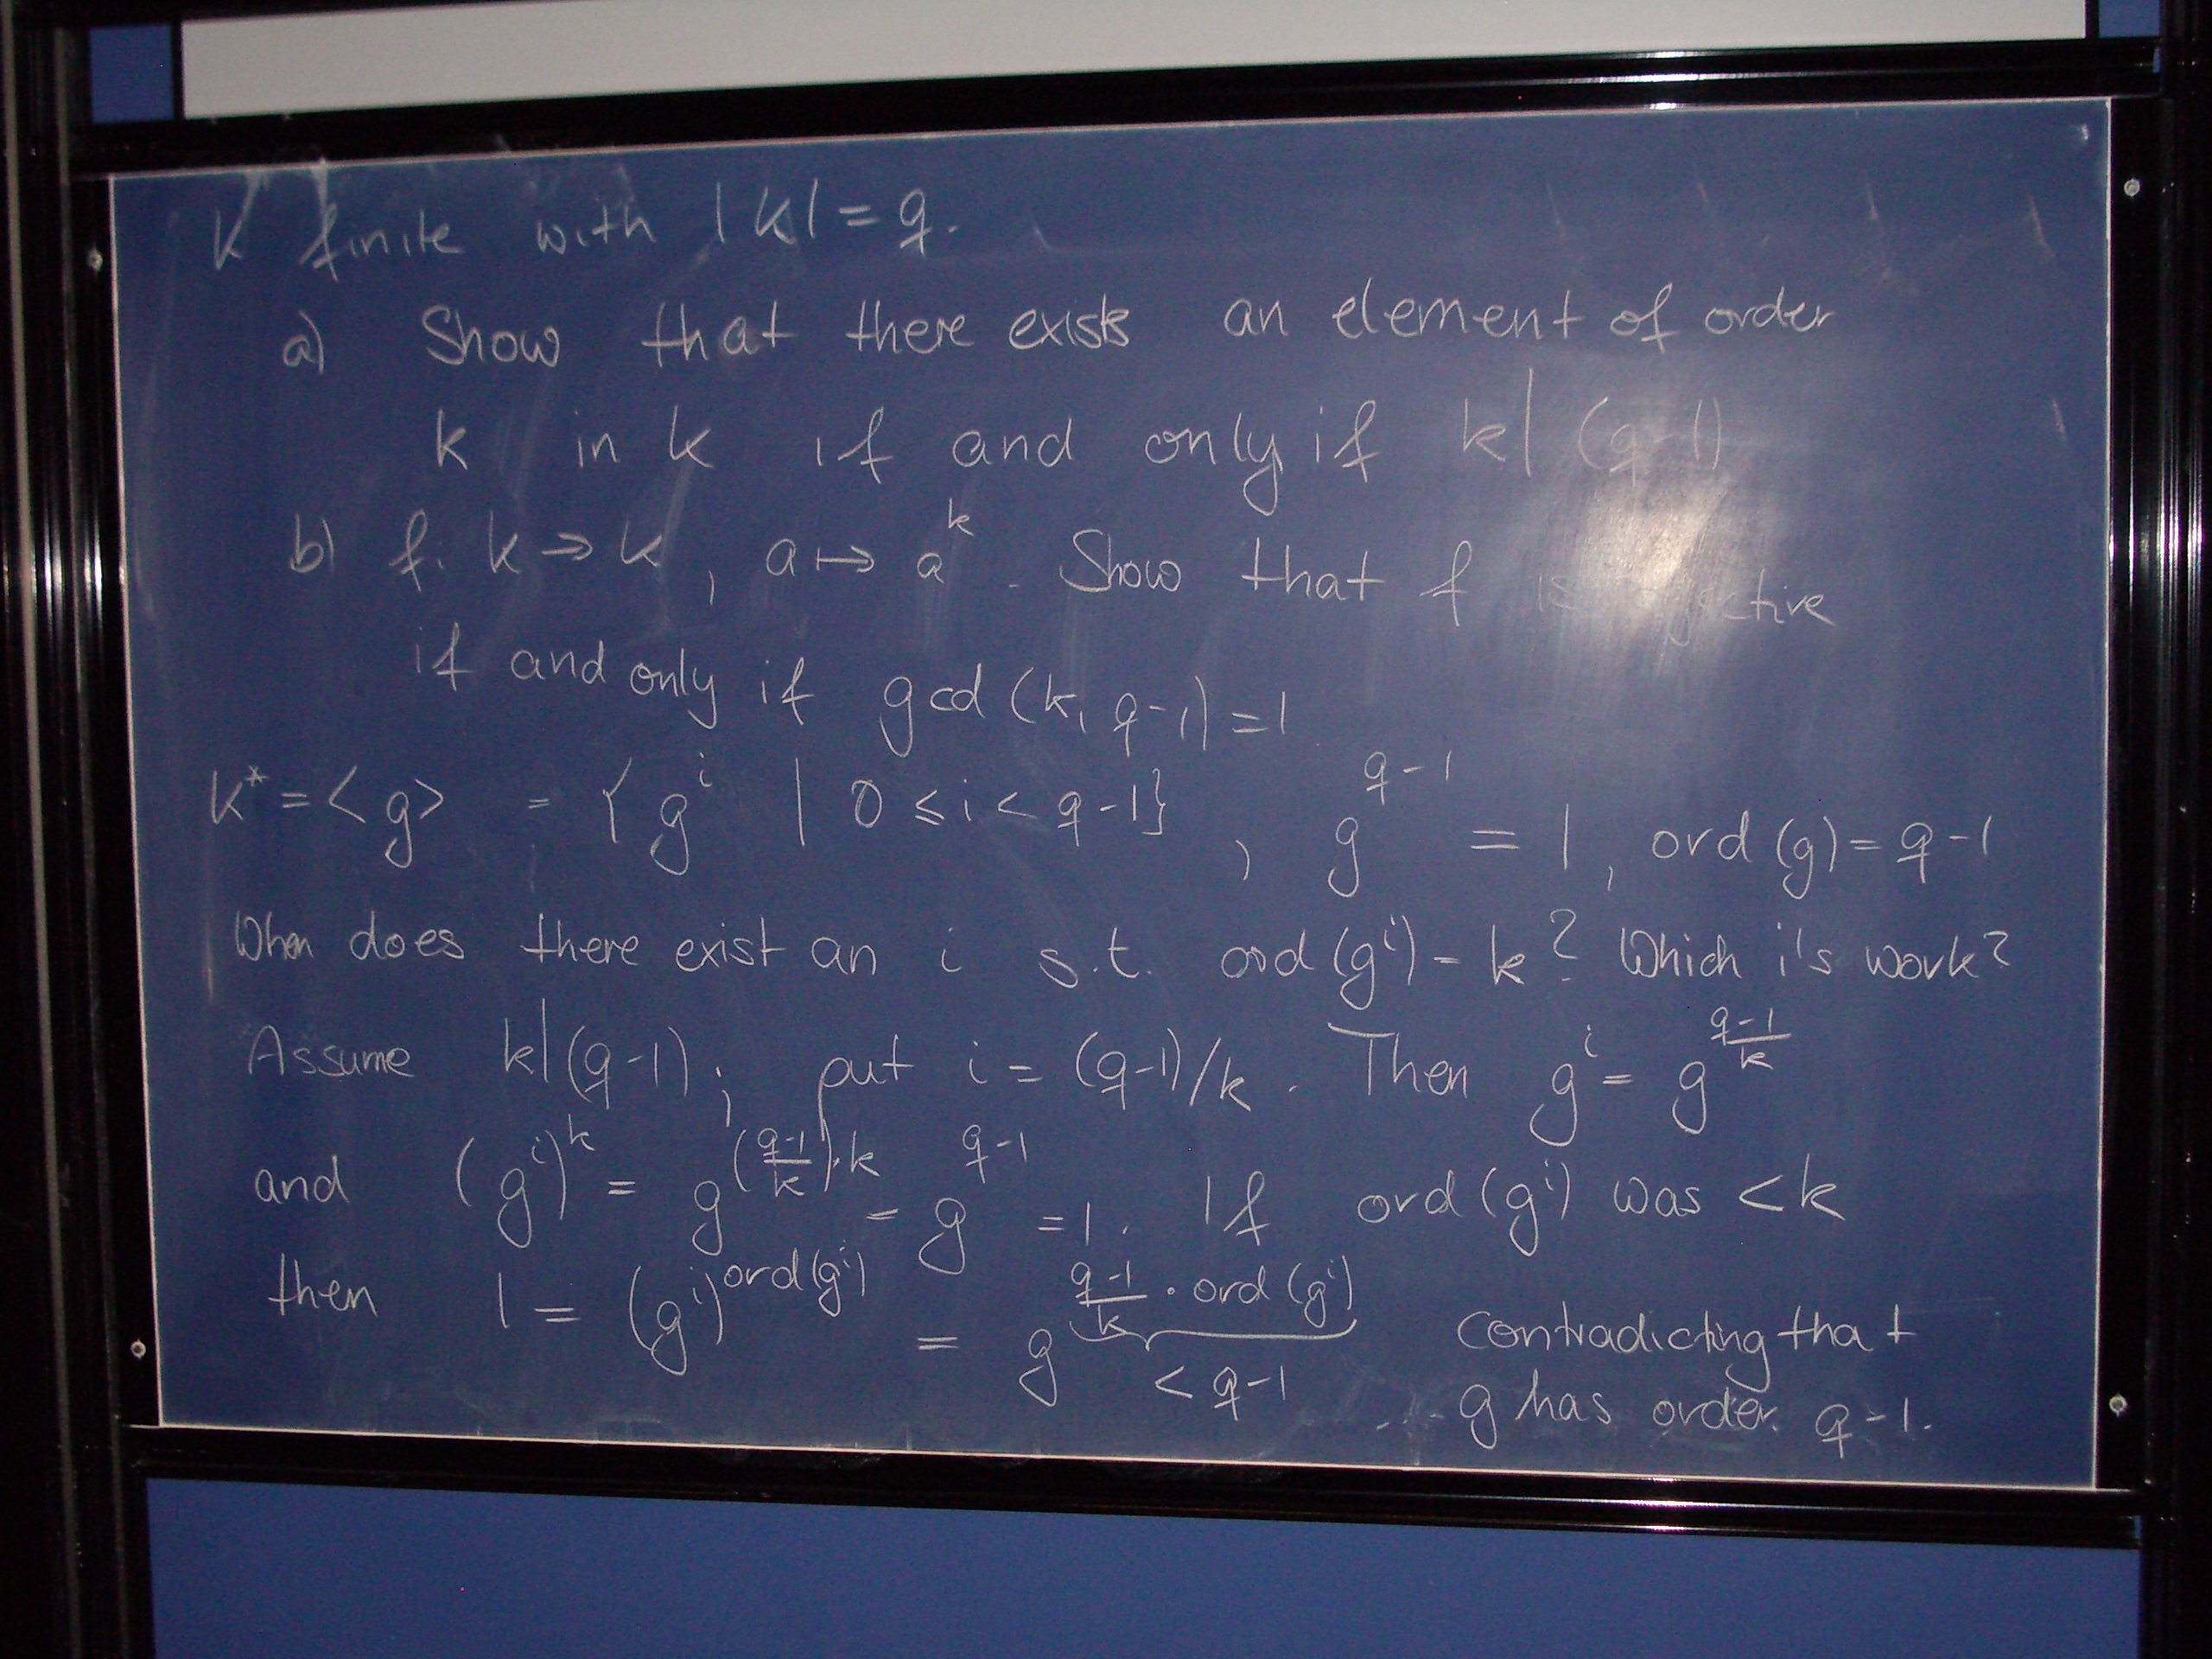 K finite with |K| = q.
a) Show that there exists an element of order
k in K if and only if k | (q-1)
b) f: K → K, a ↦ a^k. Show that f is
if and only if gcd(k, q-1) = 1
K* = <g> = {g^i | 0 ≤ i < q-1}, g^{q-1} = 1, ord(g) = q-1
When does there exist an i s.t. ord(g^i) = k? Which i's work?
Assume k|(q-1); put i = (q-1)/k. Then g^i = g^{\frac{q-1}{k}}
and (g^i)^k = g^{(\frac{q-1}{k})·k} = g^{q-1} = 1. If ord(g^i) was < k
then 1 = (g^i)^{ord(g^i)} = g^{\frac{q-1}{k} · ord(g^i)} contradicting that
< q-1 g has order q-1.